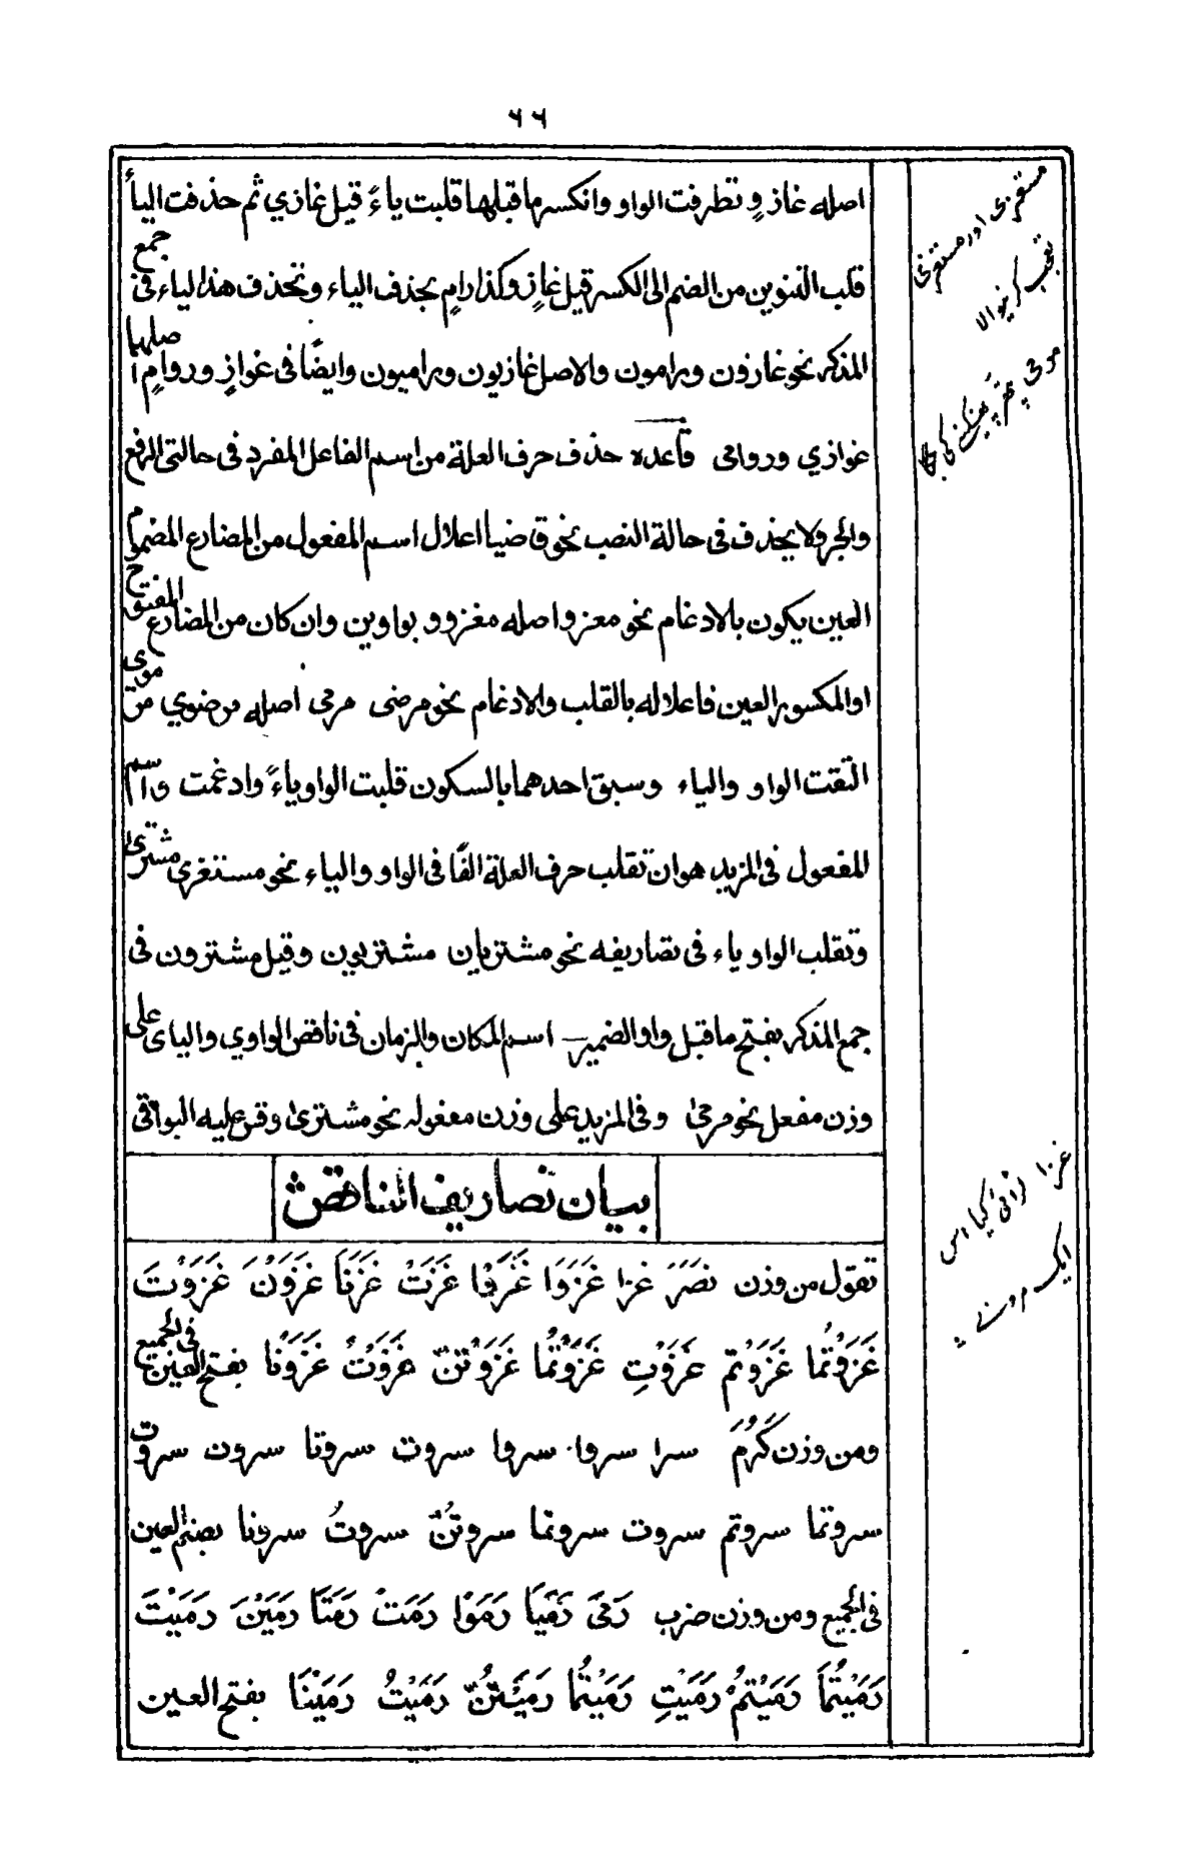 ٦٦
اصله غازوٍ وتطرفت الواو وانكسر ما قبلها قلبت ياءً قيل غازي ثم حذفت الياءُ
قلب التنوين من الضم الى الكسر قيل غازٍ وكذا رامٍ بحذف الياء وتحذف هذا الياء فى جمع
المذكر نحو غازون ورامون والاصل غازيون وراميون وايضًا فى غوازٍ وروامٍ اصلهما
غوازي وروامى قاعده حذف حرف العلة من اسم الفاعل المفرد فى حالتى الرفع
والجر ولا يحذف فى حالة النصب نحو قاضيا اعلال اسم المفعول من المضارع المضموم
العين يكون بالادغام نحو معزو اصله مغزوو بواوين وان كان من المضارع المفتوح
او المكسور العين فاعلاله بالقلب والادغام نحو مرضى مرمى اصله مرضوي مرموى
التقت الواو والياء وسبق احدهما بالسكون قلبت الواو ياءً وادغمت واسم
المفعول فى المزيد هو ان تقلب حرف العلة الفًا فى الواو والياء نحو مستغرى مشترى
وتقلب الواو ياء فى تصاريفه نحو مشتريان مشتريون وقيل مشترون فى
جمع المذكر بفتح ما قبل واو الضمير ــ اسم المكان والزمان فى ناقص الواوي والياى على
وزن مفعل نحو مرمىٰ وفى المزيد على وزن مفعوله نحو مشترىٰ وقس عليه البواقى
بيان تصاريف الناقص
تقول من وزن نَصَرَ غزا غَزَوَا غَزَوْا غَزَتْ غَزَتَا غَزَوْنَ غَزَوْتَ
غَزَوْتُما غَزَوْتم غَزَوْتِ غَزَوْتُما غَزَوْتنّ غَزَوْتُ غَزَوْنا بفتح العين فى الجميع
ومن وزن كَرُمَ سرا سروا سروا سروت سروتا سرون سروت
سروتما سروتم سروت سروتما سروتنّ سروتُ سرونا بضم العين
فى الجميع ومن وزن ضرب رَمَىٰ رَمَيَا رَمَوْا رَمَتْ رَمَتَا رَمَيْنَ رَمَيْتَ
رَمَيْتُمَا رَمَيْتُمْ رَمَيْتِ رَمَيْتُمَا رَمَيْتُنَّ رَمَيْتُ رَمَيْنَا بفتح العين
اور
تعجب كرنيوالا
غزا
كيا اس
ايک مرد نے